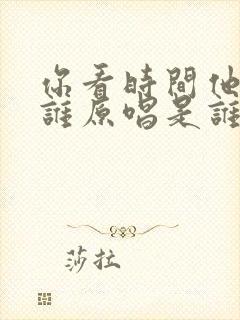 你看時間他
誰原唱是誰
莎拉